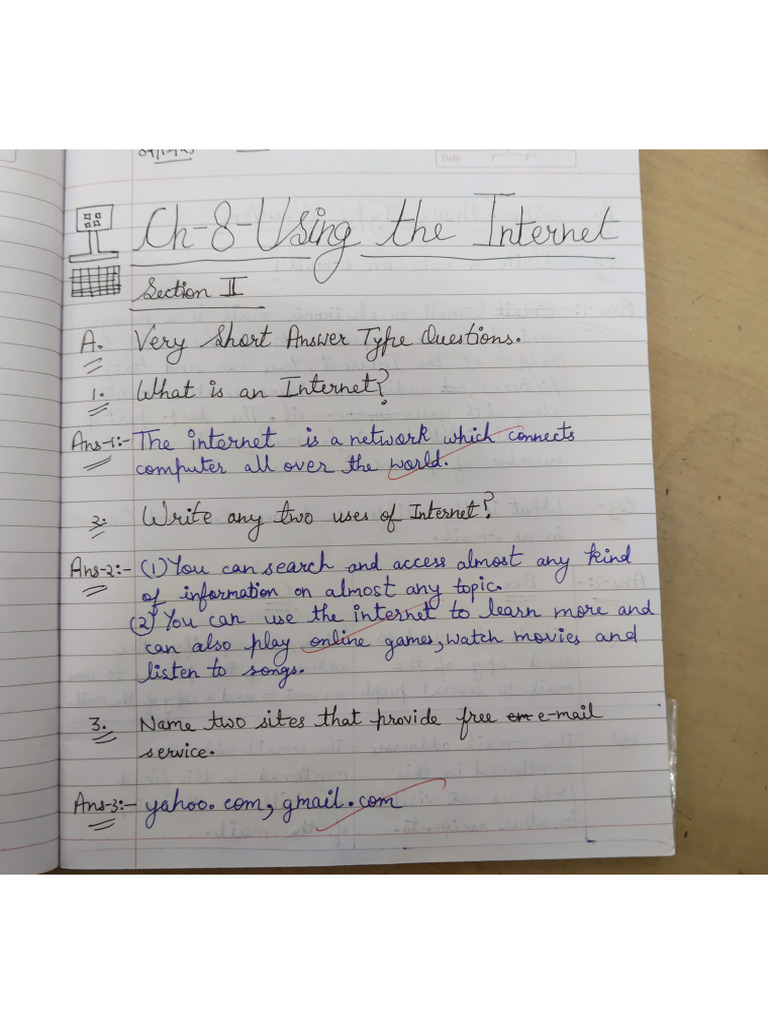 Date / /
Ch-8-Using the Internet
Section II
A. Very Short Answer Type Questions.
1. What is an Internet?
Ans-1:- The internet is a network which connects
computer all over the world.
2. Write any two uses of Internet?
Ans-2:- (1) You can search and access almost any kind
of information on almost any topic.
(2) You can use the internet to learn more and
can also play online games, watch movies and
listen to songs.
3. Name two sites that provide free e-mail
service.
Ans-3:- yahoo.com, gmail.com